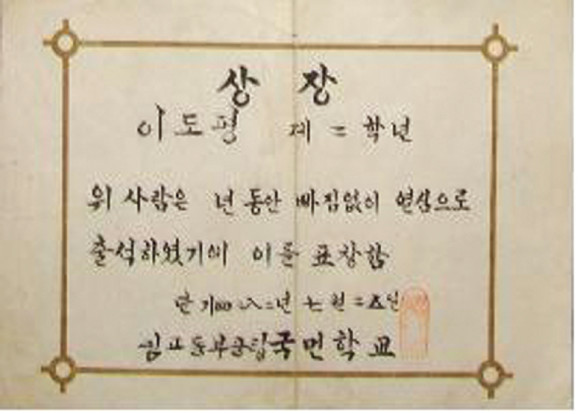 상장
이도평 제二학년
위 사람은 년동안 빠짐없이 열심으로
출석하였기에 이를 표창함
단기 四 八二년 七월 二五일
국민학교